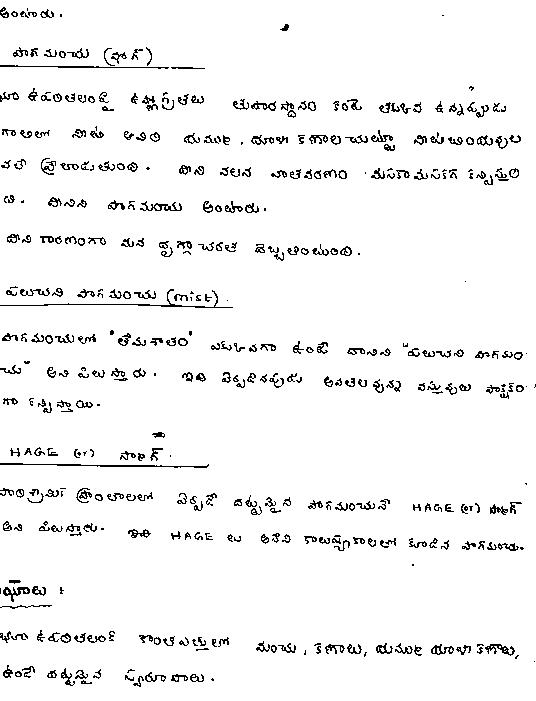 అంటారు.
పొగమంచు (ఫాగ్)
భూ ఉపరితలంపై ఉష్ణోగ్రతలు తుషారస్థానం కంటే తక్కువ ఉన్నప్పుడు
గాలిలో నీటి ఆవిరి దుమ్ము, ధూళి కణాల చుట్టూ నీటిబిందువుల
వలె వ్రేలాడుతుంది. దీని వలన వాతవరణం మసకమసకగ కన్పిస్తుం
ది. దీనిని పొగమంచు అంటారు.
దీని కారణంగా మన దృగ్గోచరత దెబ్బతింటుంది.
పలుచని పొగమంచు (mist).
పొగమంచులో "తేమశాతం" ఎక్కువగా ఉంటే దానిని "పలుచని పొగమం
చు" అని పిలుస్తారు. ఇది ఏర్పడినపుడు అవతలవున్న వస్తువులు పాక్షికం
గా కన్పిస్తాయి.
HAGE (or) స్మాగ్.
పారిశ్రామిక ప్రాంతాలలో ఏర్పడే దట్టమైన పొగమంచునే HAGE (or) స్మాగ్
అని పిలుస్తారు. ఇది HAGE లు అనేవి కాలుష్యకాలతో కూడిన పొగమంచు.
ఘాలు :
భూ ఉపరితలంకి కొంత ఎత్తులో మంచు, కణాలు, దుమ్ము ధూళి కణాలు,
ఉండే దట్టమైన స్వరూపాలు.